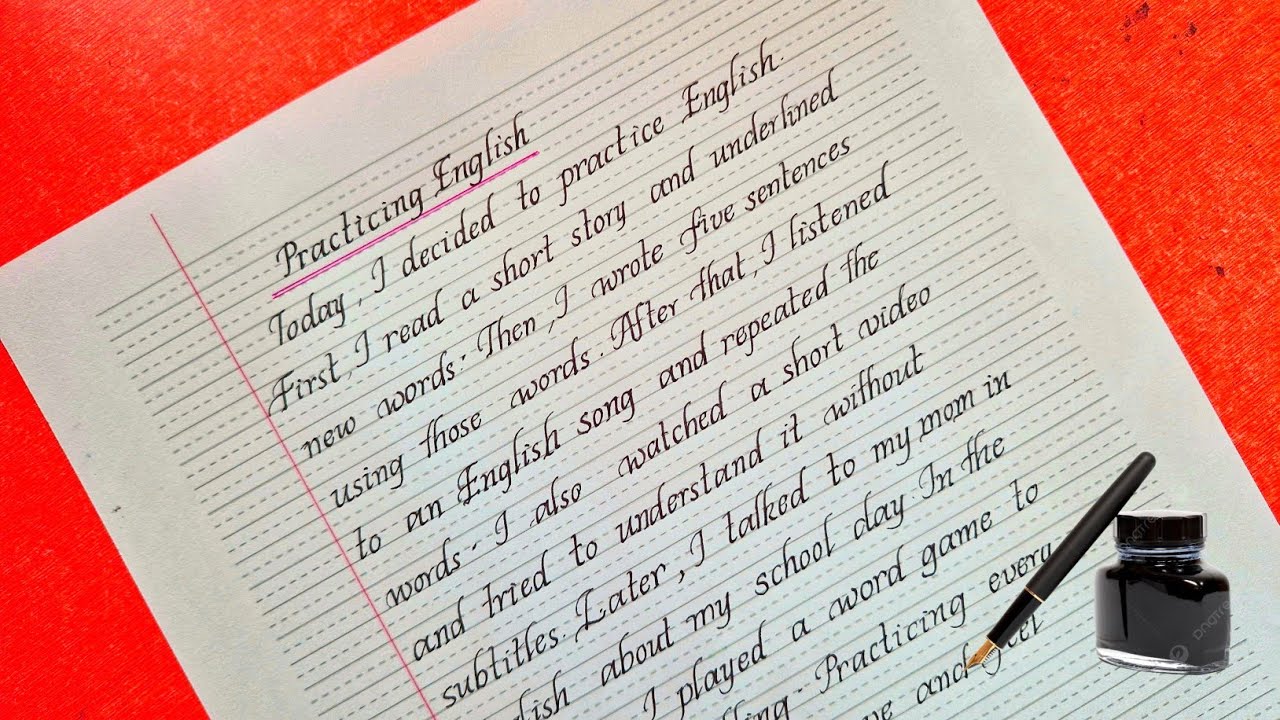 Practicing English
Today, I decided to practice English.
First, I read a short story and underlined
new words. Then, I wrote five sentences
using those words. After that, I listened
to an English song and repeated the
words. I also watched a short video
and tried to understand it without
subtitles. Later, I talked to my mom in
about my school day. In the
I played a word game to
Practicing every
and feel